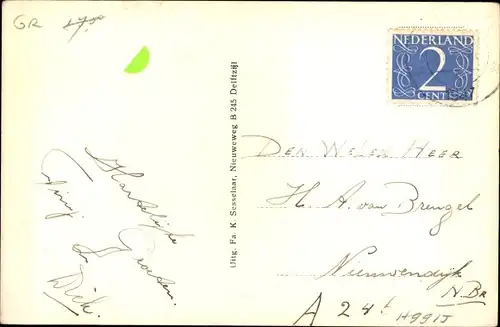 GR
NEDERLAND
2
CENT
Uitg. Fa. K. Sesselaar, Nieuweweg B 245 Delftzijl
Hartelijke
Groeten.
Tiny &
Dick.
DEN WELED HEER
H. A. van Breugel
Nieuwendijk
N.Br
A 24t